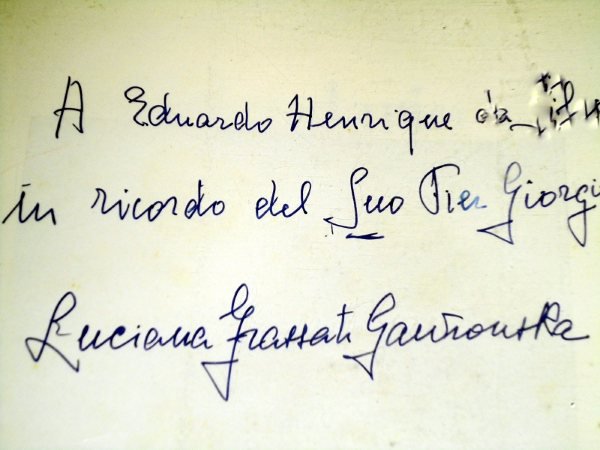 A Eduardo Henrique da
in ricordo del Suo Pier Giorgi
Luciana Frassati Gawronska